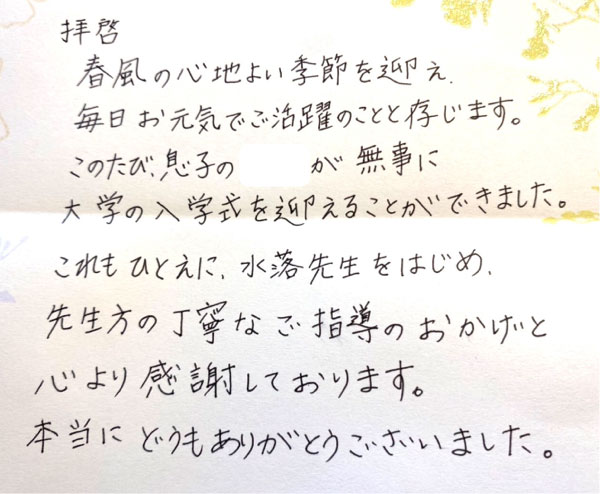 拝啓
春風の心地よい季節を迎え、
毎日お元気でご活躍のことと存じます。
このたび、息子の　　　が無事に
大学の入学式を迎えることができました。
これもひとえに、水落先生をはじめ、
先生方の丁寧なご指導のおかげと
心より感謝しております。
本当にどうもありがとうございました。